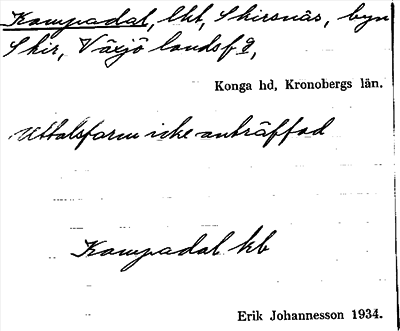 Kampadal, lht, Skirsnäs, byn
Skir, Växjö landsf ͟g,
Konga hd, Kronobergs län.
Uttalsform icke anträffad
Kampadal kb
Erik Johannesson 1934.